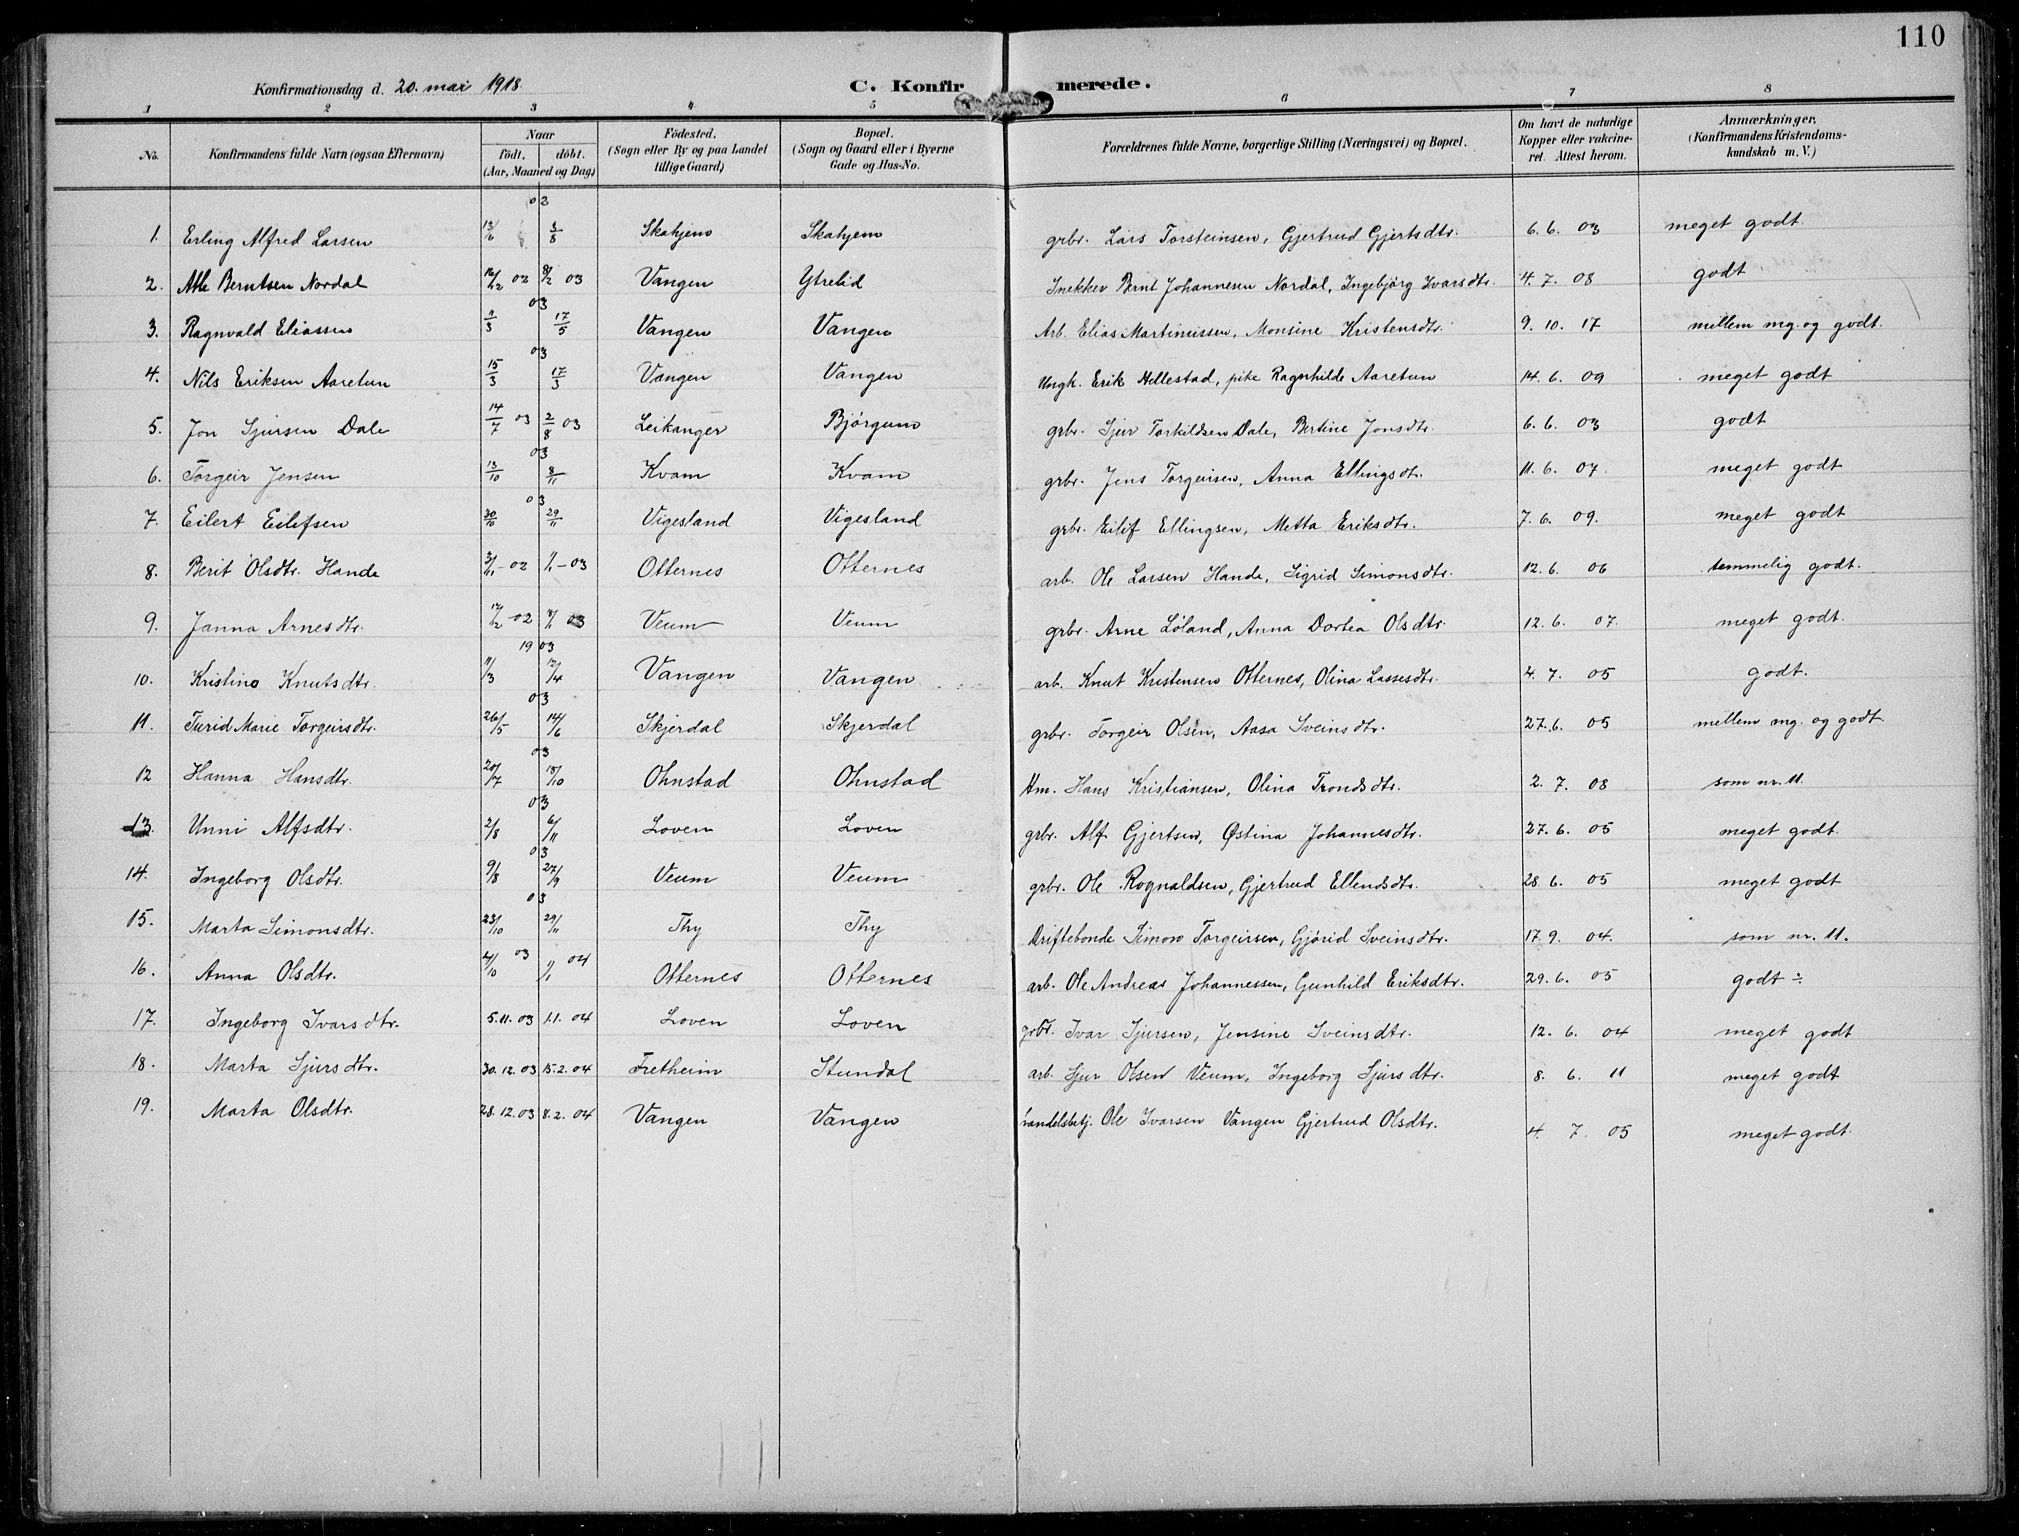 110
Konfirmationsdag d. 20. mai 1918. C. Konfirmerede.
1 2 3 4 5 6 7 8
No. Konfirmandens fulde Navn (ogsaa Efternavn) Naar født. døbt. (Aar, Maaned og Dag) Fødested. (Sogn eller By og paa Landet tillige Gaard) Bopæl. (Sogn og Gaard eller i Byerne Gade og Hus-No. Forældrenes fulde Navne, borgerlige Stilling (Næringsvei) og Bopæl. Om havt de naturlige Kopper eller vakcineret. Attest herom. Anmærkninger. (Konfirmandens Kristendomskundskab m. V.)
02
1. Erling Alfred Larsen 13/6 3/8 Skahjem Skahjem grbr. Lars Torsteinsen, Gjertrud Gjertsdtr. 6. 6. 03 meget godt.
2. Atle Berntsen Nordal 12/12 02 8/2 03 Vangen Ytrelid Snekker Bernt Johannesen Nordal, Ingebjørg Ivarsdtr. 4. 7. 08 godt
03
3. Ragnvald Eliassen 9/3 17/5 Vangen Vangen Arb. Elias Martinussen, Monsine Kristensdtr. 9. 10. 17 mellem mg. og godt.
03
4. Nils Eriksen Aaretun 15/3 17/3 Vangen Vangen Ungk. Erik Hellestad, pike Ragnhilde Aaretun 14. 6. 09 meget godt
5. Jon Sjursen Dale 14/7 03 2/8 03 Leikanger Bjørgum grbr. Sjur Torkildsen Dale, Bertine Jonsdtr. 6. 6. 03 godt
03
6. Torgeir Jensen 13/10 8/11 Kvam Kvam grbr. Jens Torgeirsen, Anna Ellingsdtr. 11. 6. 07. meget godt
03
7. Eilert Eilifsen 30/10 29/11 Vigesland Vigesland grbr. Eilif Ellingsen, Metta Eriksdtr. 7. 6. 09. meget godt
8. Berit Olsdtr. Hande 3/11 - 02 1/1 - 03 Otternes Otternes arb. Ole Larsen Hande, Sigrid Simonsdtr. 12. 6. 06 temmelig godt.
9. Janna Arnesdtr. 17/12 02 4/1 03 Veum Veum grbr. Arne Løland, Anna Dortea Olsdtr. 12. 6. 07. meget godt.
1903
10. Kristine Knutsdtr. 11/3 12/4 Vangen Vangen arb. Knut Kristensen Otternes, Olina Lassesdtr. 4. 7. 05 godt.
03
11. Turid Marie Torgeirsdtr. 26/5 14/6 Skjerdal Skjerdal grbr. Torgeir Olsen, Aasa Sveinsdtr. 27. 6. 05 mellem mg. og godt.
03
12 Hanna Hansdtr. 20/7 18/10 Ohnstad Ohnstad Hm. Hans Kristiansen, Olina Trondsdtr. 2. 7. 08 som nr. 11.
03
13. Unni Alfsdtr. 2/8 6/11 Loven Loven grbr. Alf Gjertsen, Østina Johannesdtr. 27. 6. 05 meget godt.
03
14. Ingeborg Olsdtr. 9/8 27/9 Veum Veum grbr. Ole Rognaldsen, Gjertrud Ellendsdtr. 28. 6. 05 meget godt
03
15. Marta Simonsdtr. 23/10 29/11 Thy Thy Driftebonde Simon Torgeirsen, Gjørid Sveinsdtr. 17. 9. 04. som nr. 11.
16. Anna Olsdtr. 4/10 03 1/1 04 Otternes Otternes arb. Ole Andreas Johannessen, Gunhild Eriksdtr. 29. 6. 05 godt ÷
17. Ingeborg Ivarsdtr. 5.11. 03 1.1. 04 Loven Loven grbr. Ivar Sjursen, Jensine Sveinsdtr. 12. 6. 04 meget godt
18. Marta Sjursdtr. 30.12.03 15.2.04 Fretheim Stundal arb. Sjur Olsen Veum, Ingeborg Sjursdtr. 8. 6. 11 meget godt
19. Marta Olsdtr. 28.12.03 8.2. 04 Vangen Vangen handelsbetj. Ole Ivarsen Vangen Gjertrud Olsdtr. 4. 7. 05 meget godt.